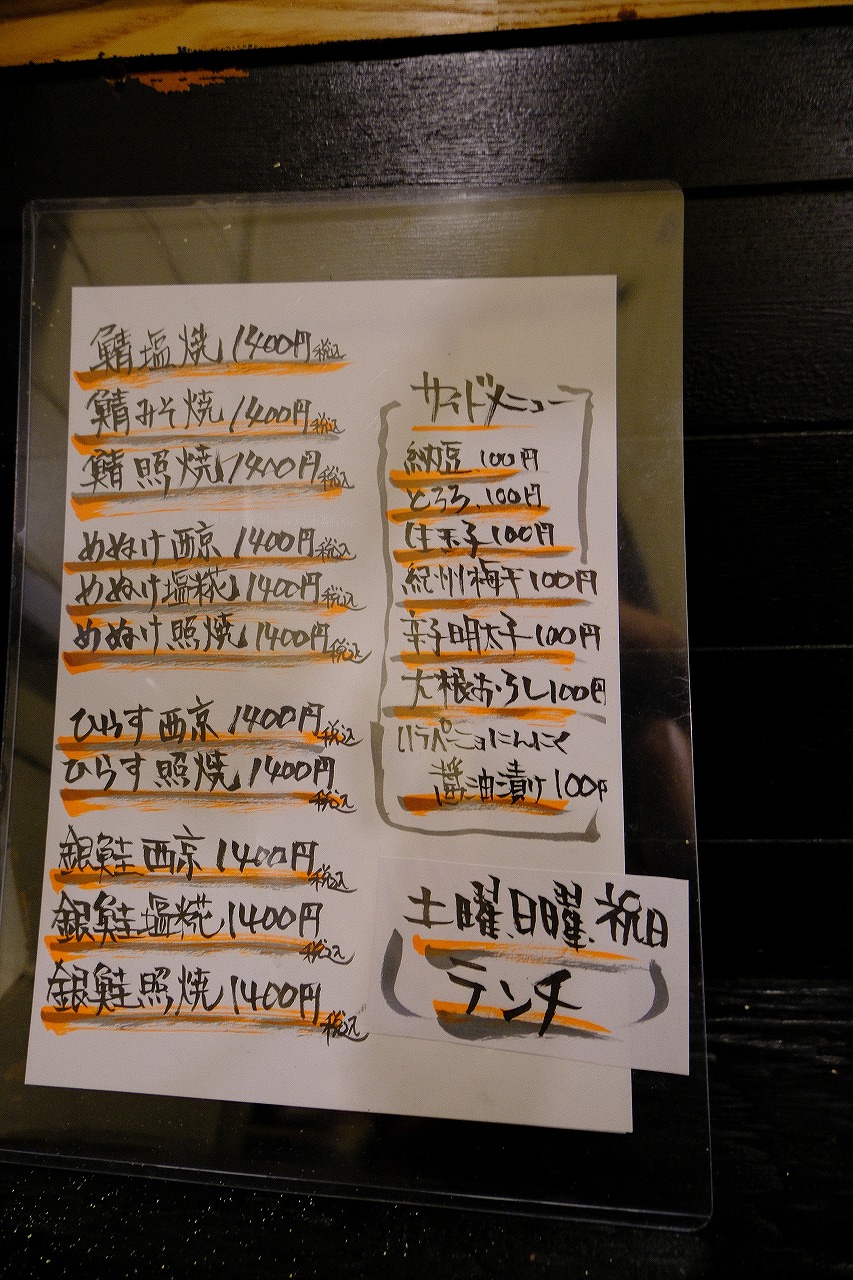 鯖塩焼 1400円税込
鯖みそ焼 1400円税込
鯖照焼 1400円税込
めぬけ西京 1400円税込
めぬけ塩糀 1400円税込
めぬけ照焼 1400円税込
ひらす西京 1400円税込
ひらす照焼 1400円税込
銀鮭西京 1400円税込
銀鮭塩糀 1400円税込
銀鮭照焼 1400円税込
サイドメニュー
納豆 100円
とろろ 100円
生玉子 100円
紀州梅干 100円
辛子明太子 100円
大根おろし 100円
ハラペーニョにんにく
醤油漬け 100円
土曜、日曜、祝日
ランチ